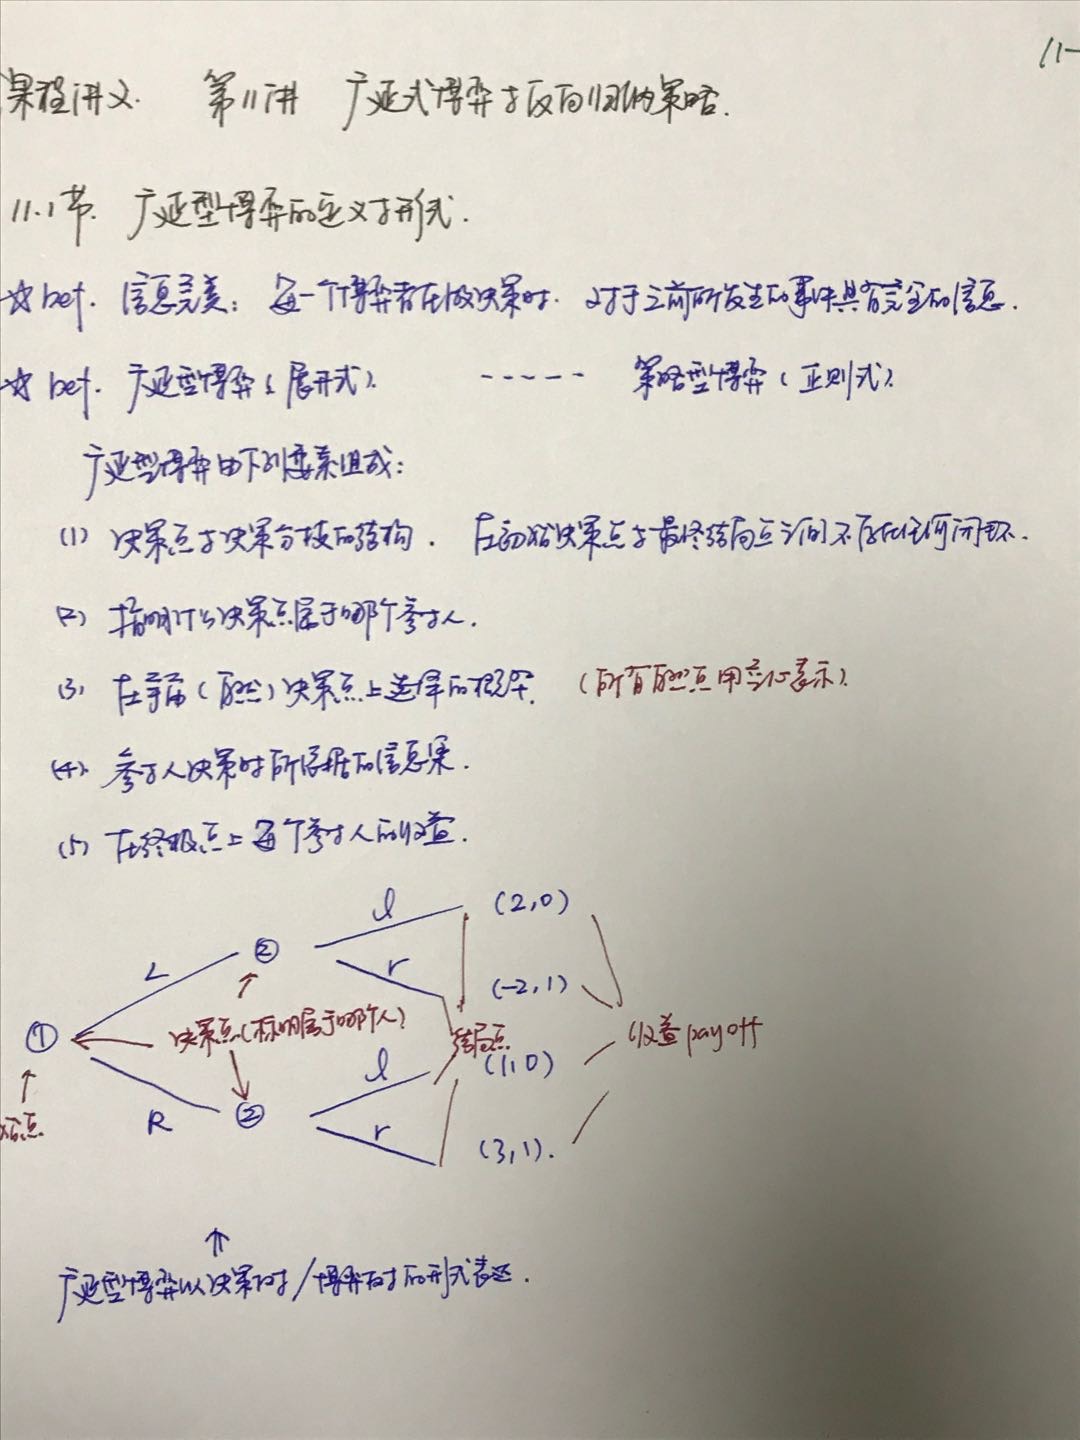 11-
课程讲义. 第11讲 广延式博弈与反向归纳策略.
11.1节. 广延型博弈的定义与形式.
☆ Def. 信息完美: 每一个博弈者在做决策时. 对于之前所发生的事件具有完全的信息.
☆ Def. 广延型博弈(展开式). ----- 策略型博弈(正则式).
广延型博弈由下列要素组成:
(1) 决策点与决策分枝的结构. 在初始决策点与最终结局点之间不存在任何闭环.
(2) 指明什么决策点属于哪个参与人.
(3) 在(自然)决策点上选择的概率. (所有自然点用空心表示).
(4). 参与人决策时所依据的信息集.
(5) 在终极点上每个参与人的收益.
l (2,0)
② 
L r (-2,1)
① 决策点(标明属于哪个人) 结局点 收益 payoff
l (1,0)
始点. R ② r (3,1).
↑
广延型博弈以决策树/博弈树的形式表达.